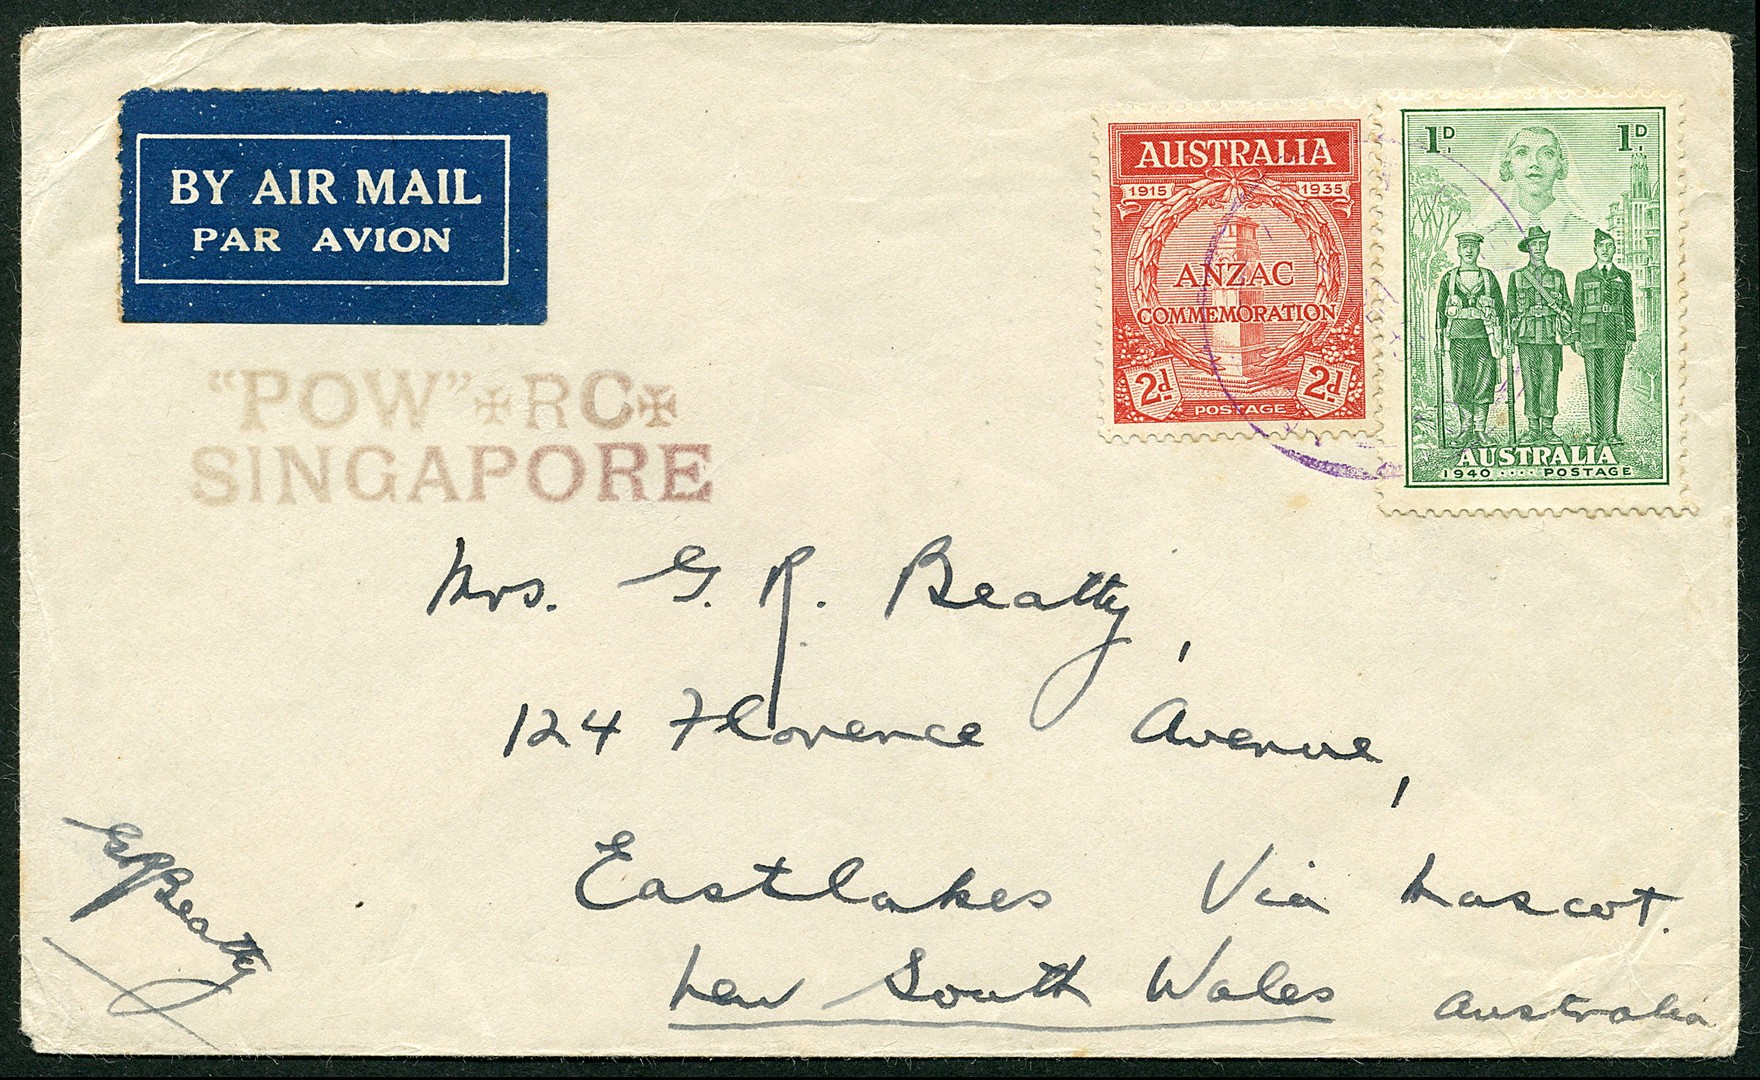 BY AIR MAIL
PAR AVION
"POW" ✠RC✠
SINGAPORE
AUSTRALIA
1915 1935
ANZAC
COMMEMORATION
2d 2d
POSTAGE
1D 1D
AUSTRALIA
1940 .... POSTAGE
Mrs. G. R. Beatty,
124 Florence Avenue,
Eastlakes Via Mascot.
New South Wales Australia
GR Beatty